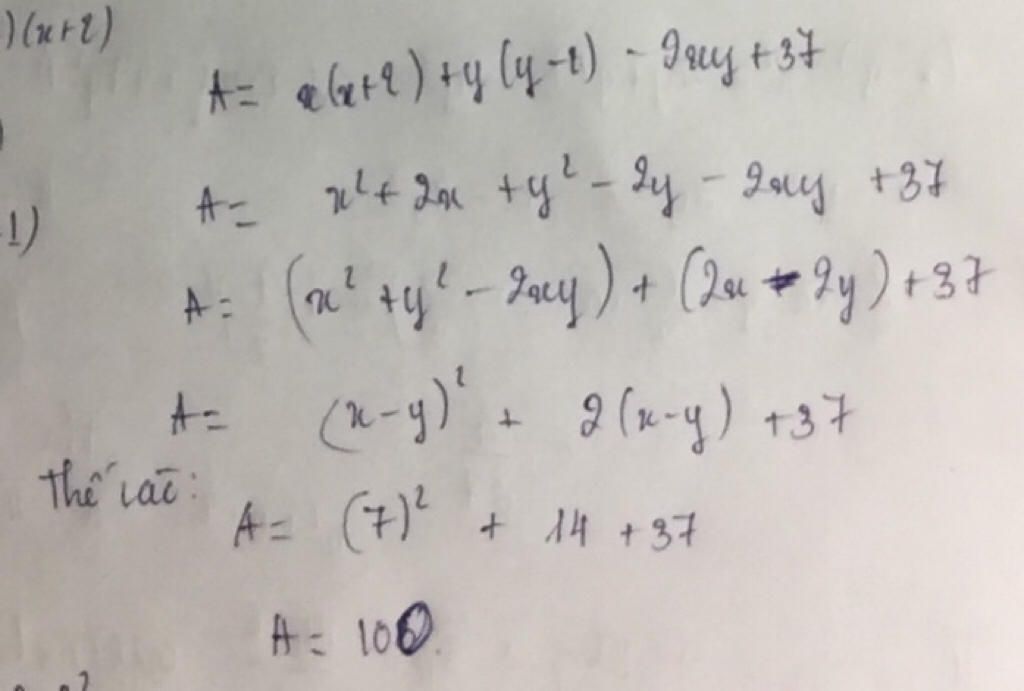 )(x+2)
A= x(x+2) +y(y-2) - 2xy +37
1)
A= x² + 2x + y² - 2y - 2xy +37
A= (x² + y² - 2xy) + (2x - 2y) +37
A= (x-y)² + 2(x-y) +37
Thế
A= (7)² + 14 +37
A= 100.